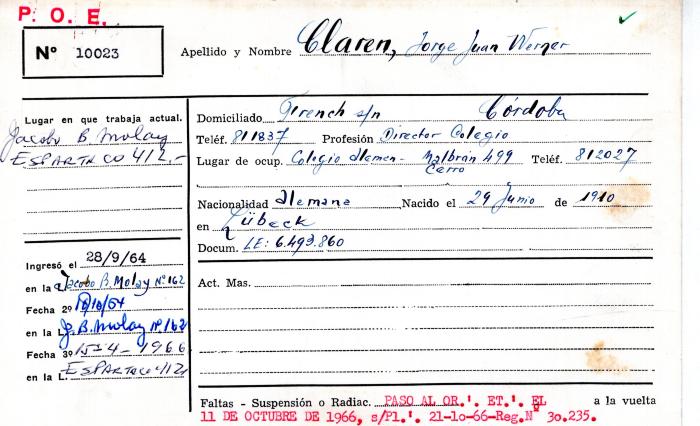 P. O. E.
Nº 10023
Apellido y Nombre Claren, Jorge Juan Werner
Lugar en que trabaja actual.
Jacobo B Molay
ESPARTACO 412.-
Domiciliado French s/n Córdoba
Teléf. 811837 Profesión Director Colegio
Lugar de ocup. Colegio Aleman - Malbrán 499 Teléf. 812027
Cerro
Nacionalidad Alemana Nacido el 29 Junio de 1910
en Lübeck
Docum. LE: 6.493.860
Ingresó el 28/9/64
en la Jacobo B. Molay Nº 162
Fecha 2º /10/64
en la L. J. B. Molay nº 162
Fecha 3º 15-4-1966
en la L. ESPARTACO 412
Act. Mas.
Faltas - Suspensión o Radiac. PASO AL OR.'. ET.'. EL a la vuelta
11 DE OCTUBRE DE 1966, s/Pl.'. 21-lo-66-Reg.Nº 3o.235.